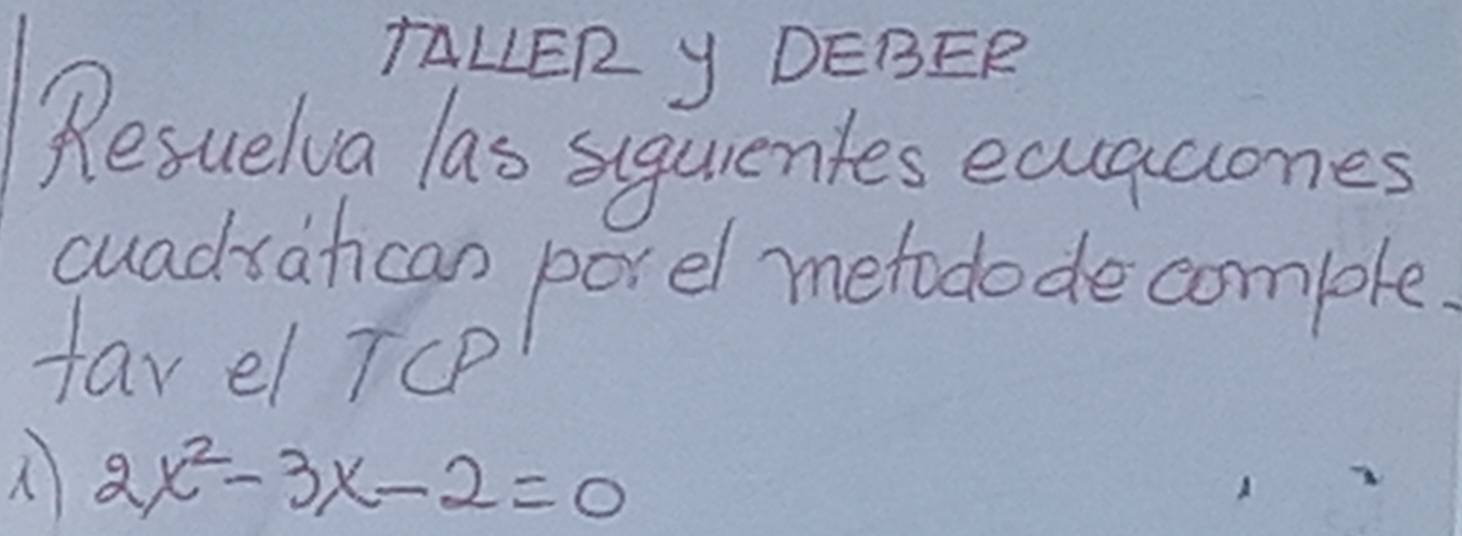 TALLER y DEBER
Resuelva las siguientes ecuaciones
cuadráticas por el metodo de comple-
tar el TCP
1) 2x² - 3x - 2 = 0